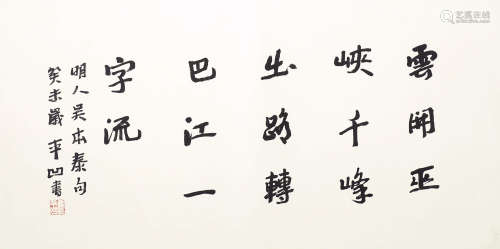 雲開巫
峽千峰
出路轉
巴江一
字流
明人吳本泰句
癸未歲平凹書